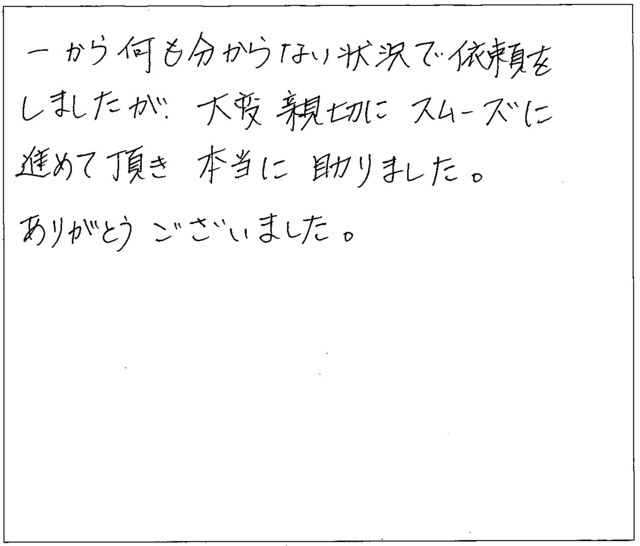 一から何も分からない状況で依頼を
しましたが、大変親切にスムーズに
進めて頂き 本当に 助りました。
ありがとう ございました。